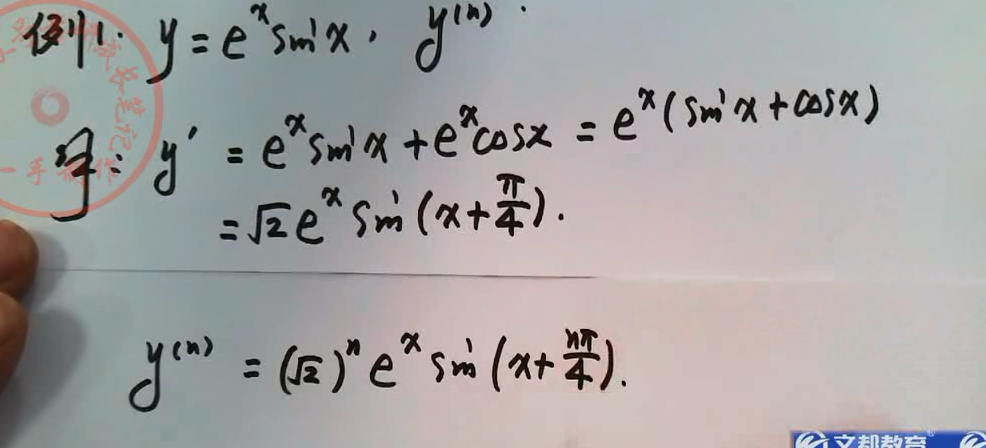 例1. y = e^x sin x, y^(n).
解: y' = e^x sin x + e^x cos x = e^x (sin x + cos x)
= √2 e^x sin (x + π/4).
y^(n) = (√2)^n e^x sin (x + nπ/4).
文都教育